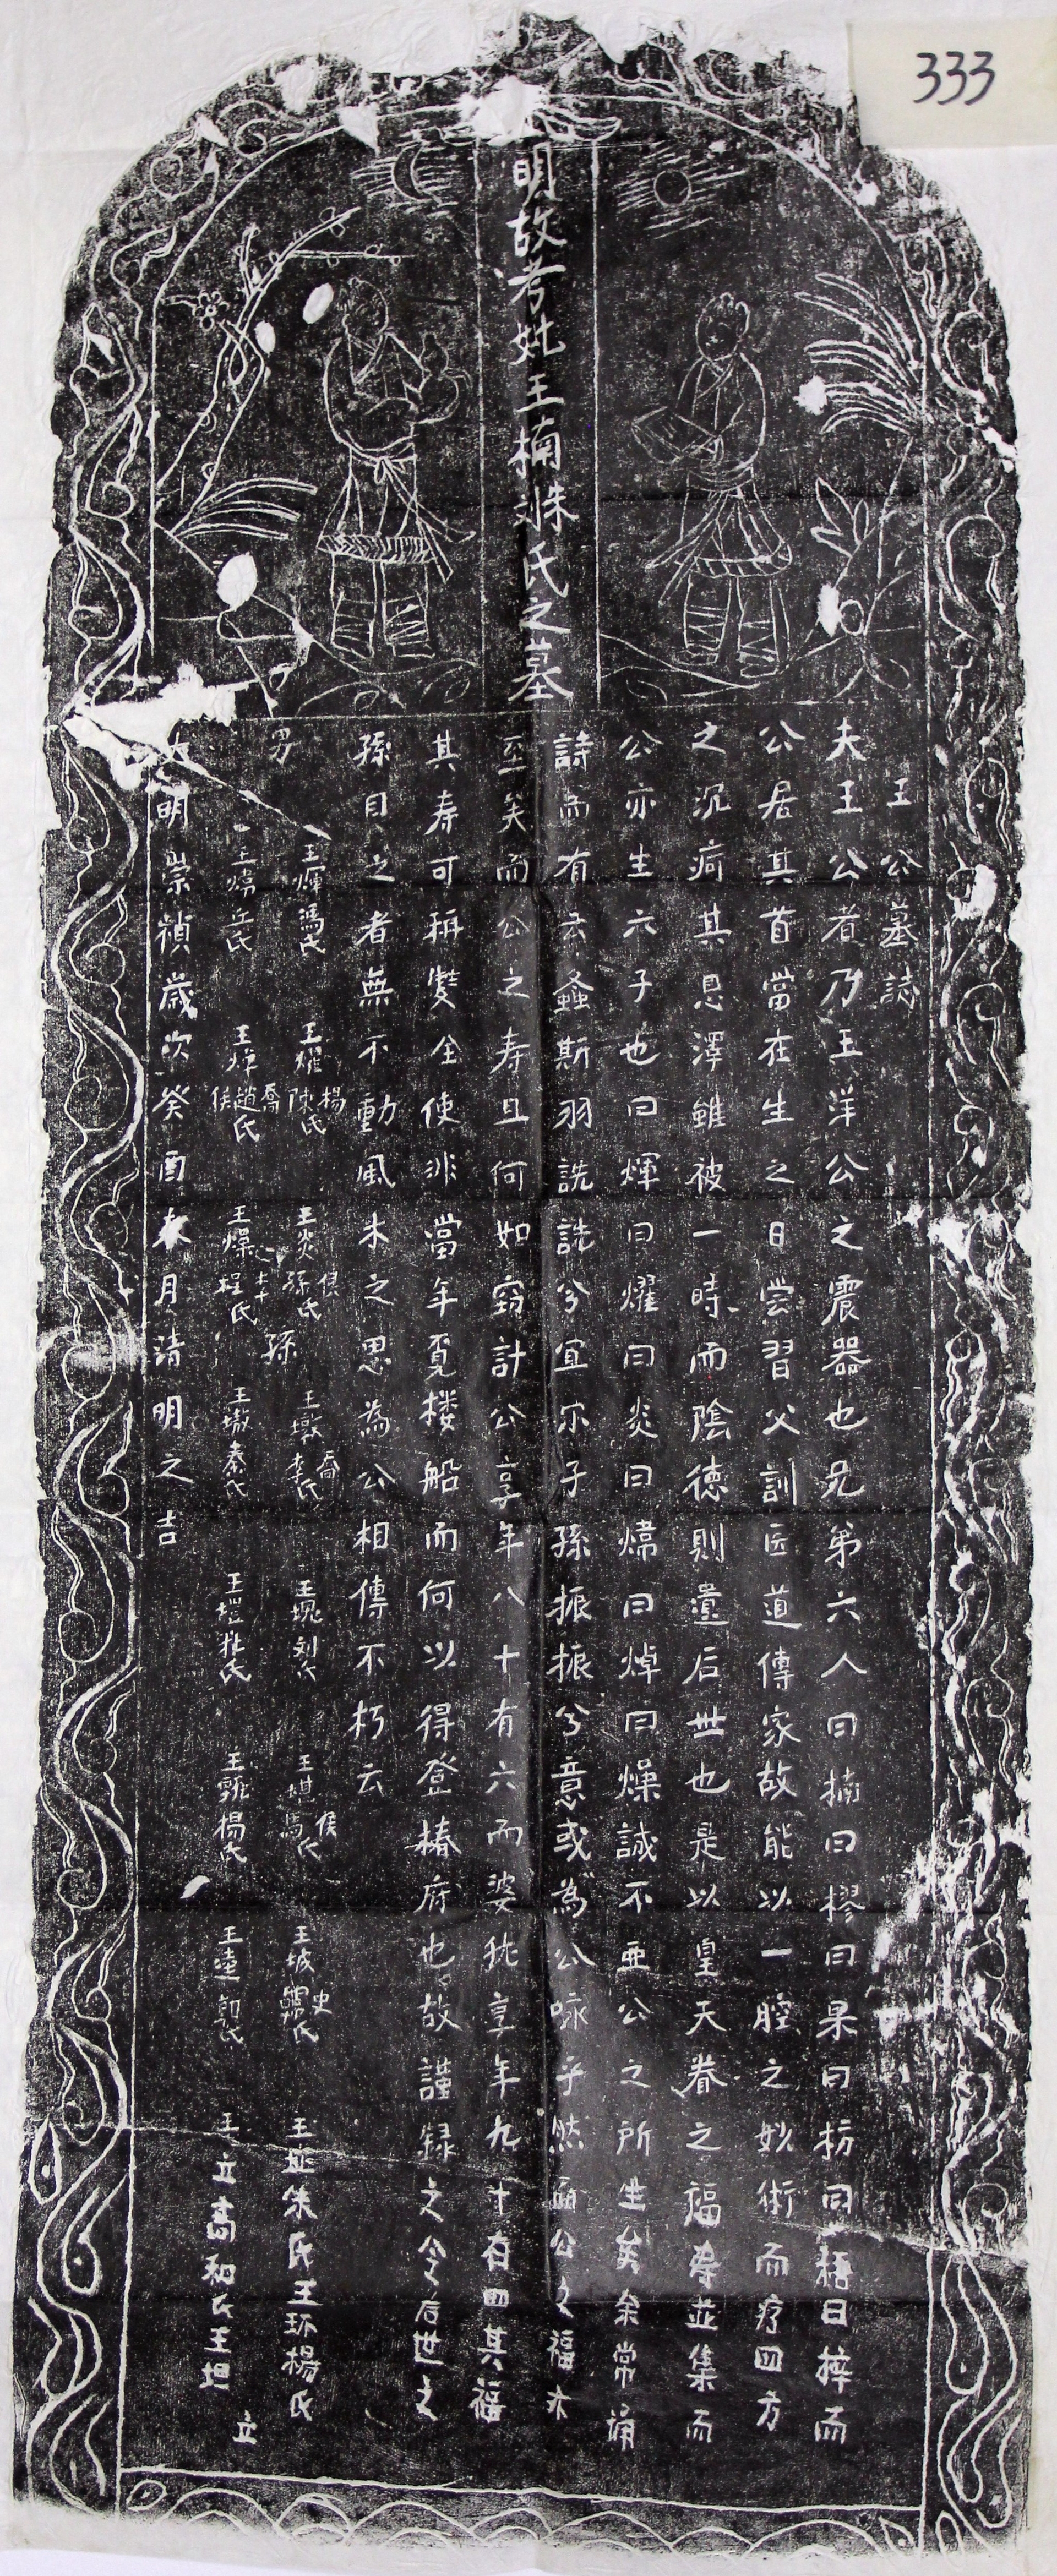 333
明故考妣王楠姝氏之墓
王公墓誌
夫王公者乃王洋公之震器也兄弟六人曰楠曰樛曰果曰枋曰梧曰榟而
公居其首當在生之日尝習父訓医道傳家故能以一腔之妙術而疗四方
之沉疴其恩澤雖被一時而陰德則遺后世也是以皇天眷之福壽並集而
公亦生六子也曰煇曰燿曰炎曰煒曰焯曰燥誠不亚公之所生矣余常誦
詩而有云螽斯羽詵詵兮宜尔子孫振振兮意或為公咏乎然而公之福亦
至矣而公之寿且何如窃計公享年八十有六而婆犹享年九十有四其福
其寿可稱雙全使非當年覔楼船而何以得登椿府也故謹録之令后世之
孫目之者無不動風木之思為公相傳不朽云
男
王煇馮氏 王燿楊陳氏 王炎侯孫氏
王煒岳氏 王焯喬趙侯氏 王燥程氏
孫
王墩喬李氏 王塊刘氏 王堪侯馬氏 王坡史氏 王址朱氏王环楊氏
王墩秦氏 王塏牡氏 楊氏 王 氏 王 和氏王坦 立
明崇禎歲次癸酉 月清明之吉